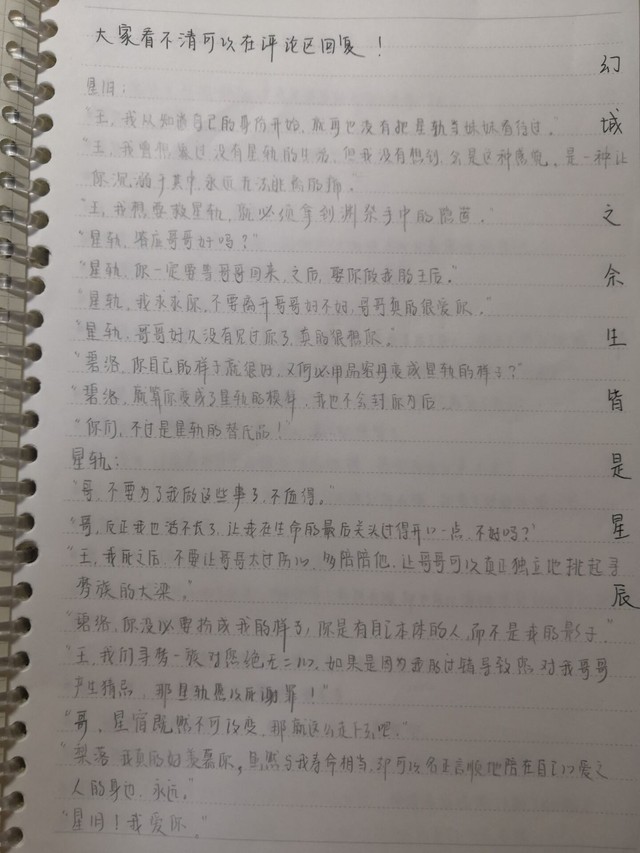 大家看不清可以在评论区回复！
星旧：
"王，我从知道自己的身份开始，就再也没有把星轨当妹妹看待过。"
"王，我曾想象过没有星轨的生活，但我没有想到，会是这种感觉，是一种让
你沉溺于其中，永远无法逃离的痛。
"王，我想要救星轨，就必须拿到渊祭手中的隐莲。"
"星轨，嫁店哥哥好吗？"
"星轨，你一定要等哥哥回来，之后，娶你做我的王后。"
"星轨，我求求你，不要离开哥哥好不好，哥哥真的很爱你。"
"星轨，哥哥好久没有见过你了，真的很想你。"
"碧洛，你自己的样子就很好，又何必用幻变成星轨的样子？"
"碧洛，就算你变成了星轨的模样，我也不会封你为后。
"你们，不过是星轨的替代品！"
星轨：
"哥，不要为了我做这些事了，不值得。"
"哥，反正我也活不久了，让我在生命的最后关头过得开心一点，不好吗？"
"王，我死之后，不要让哥哥太过伤心，多陪陪他，让哥哥可以真正独立地挑起寻
梦族的大梁。"
"碧洛，你没必要扮成我的样子，你是有自己本体的人，而不是我的影子。"
"王，我们寻梦一族对您绝无二心，如果是因为我的过错导致您对我哥哥
产生猜忌，那星轨愿以死谢罪！"
"哥，星宿既然不可改变，那就这么走下去吧。"
"梨落，我真的好羡慕你，虽然与我寿命相当，却可以名正言顺地陪在自己心爱之
人的身边，永远。"
"星旧！我爱你。"
幻城之余生皆是星辰